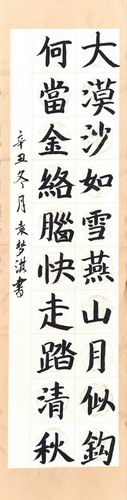 大漠沙如雪燕山月似鈎
何當金絡腦快走踏清秋
辛丑冬月袁梦淇書